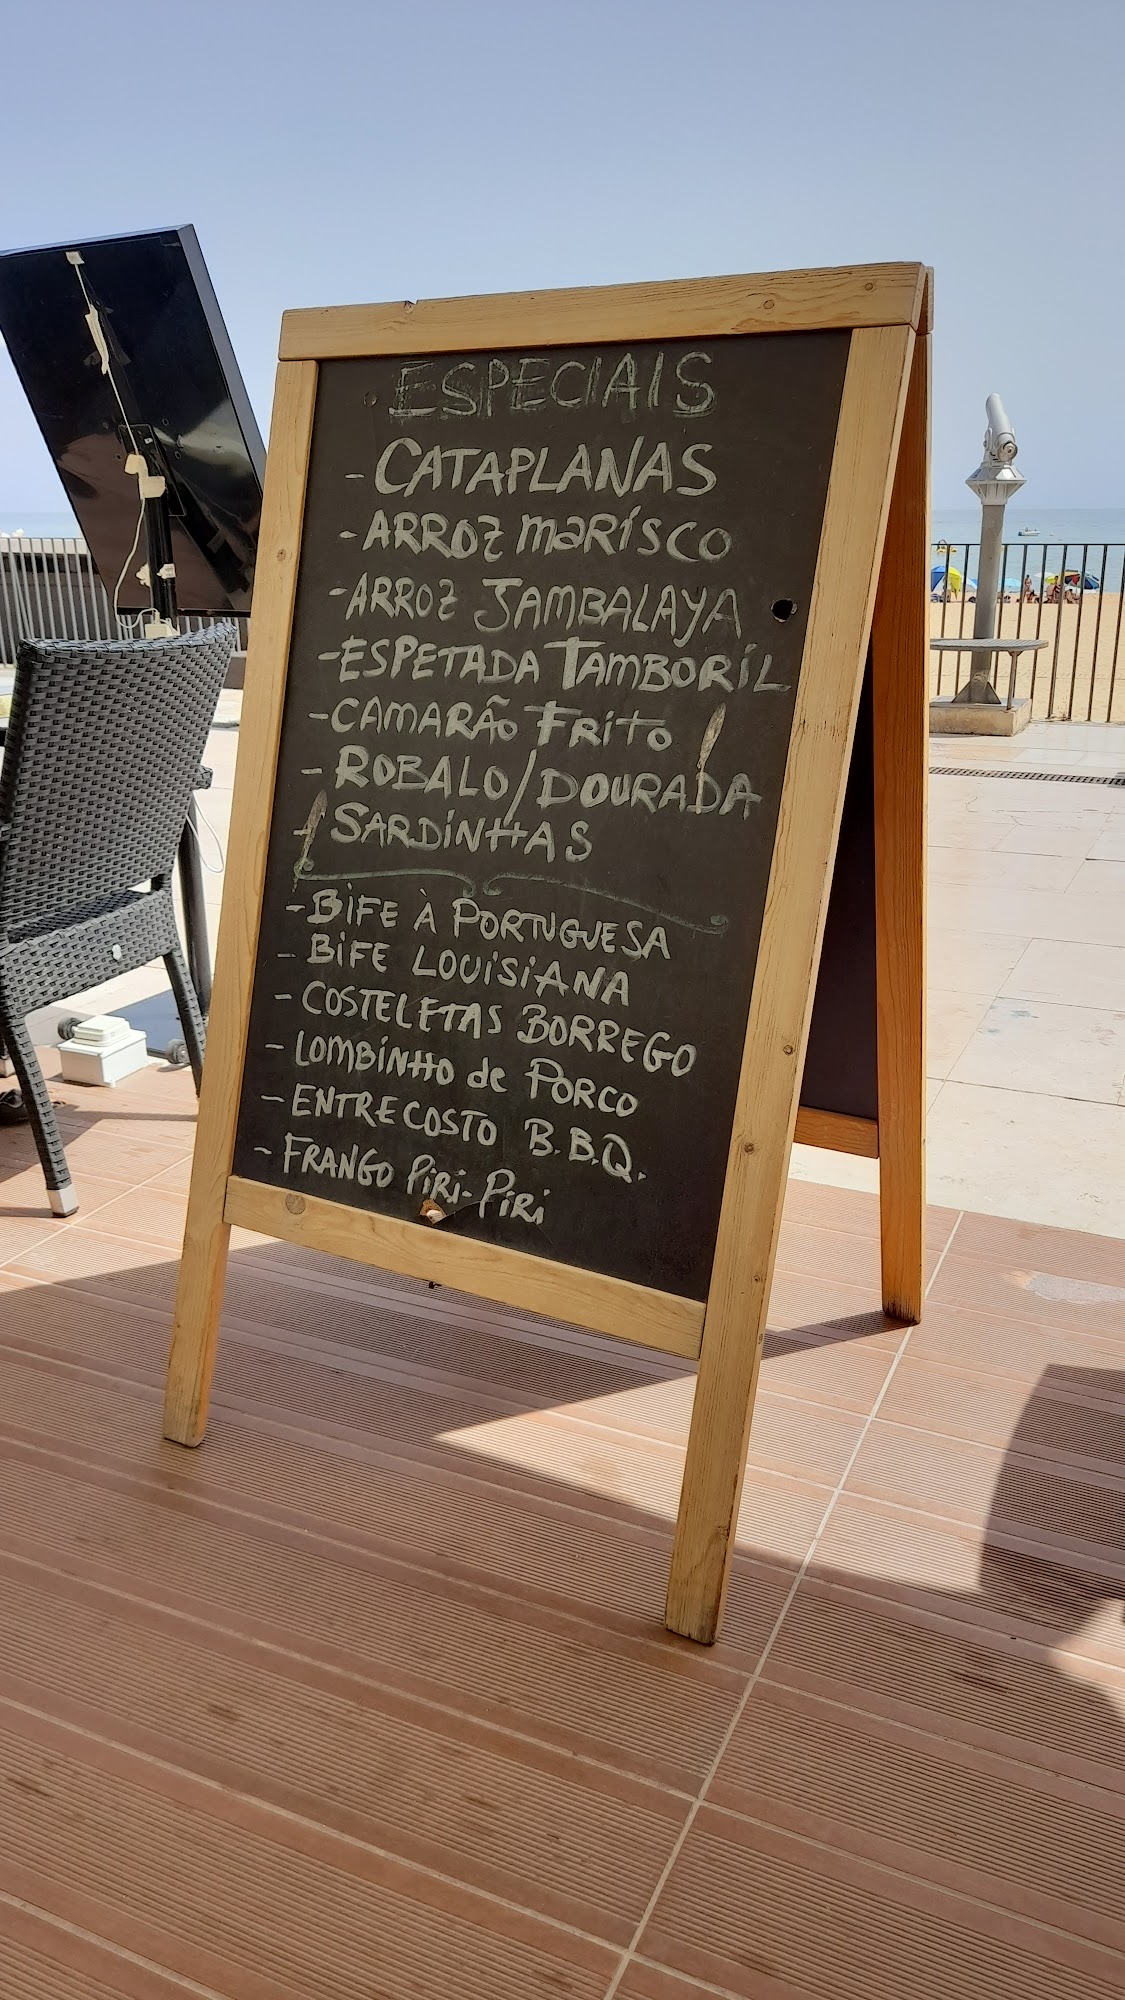 ESPECIAIS
- CATAPLANAS
- ARROZ MARÍSCO
- ARROZ JAMBALAYA
- ESPETADA TAMBORIL
- CAMARÃO FRITO
- ROBALO/DOURADA
- SARDINHAS
- BIFE À PORTUGUESA
- BIFE LOUISIANA
- COSTELETAS BORREGO
- LOMBINHO de PORCO
- ENTRECOSTO B.B.Q.
- FRANGO PIRI-PIRI